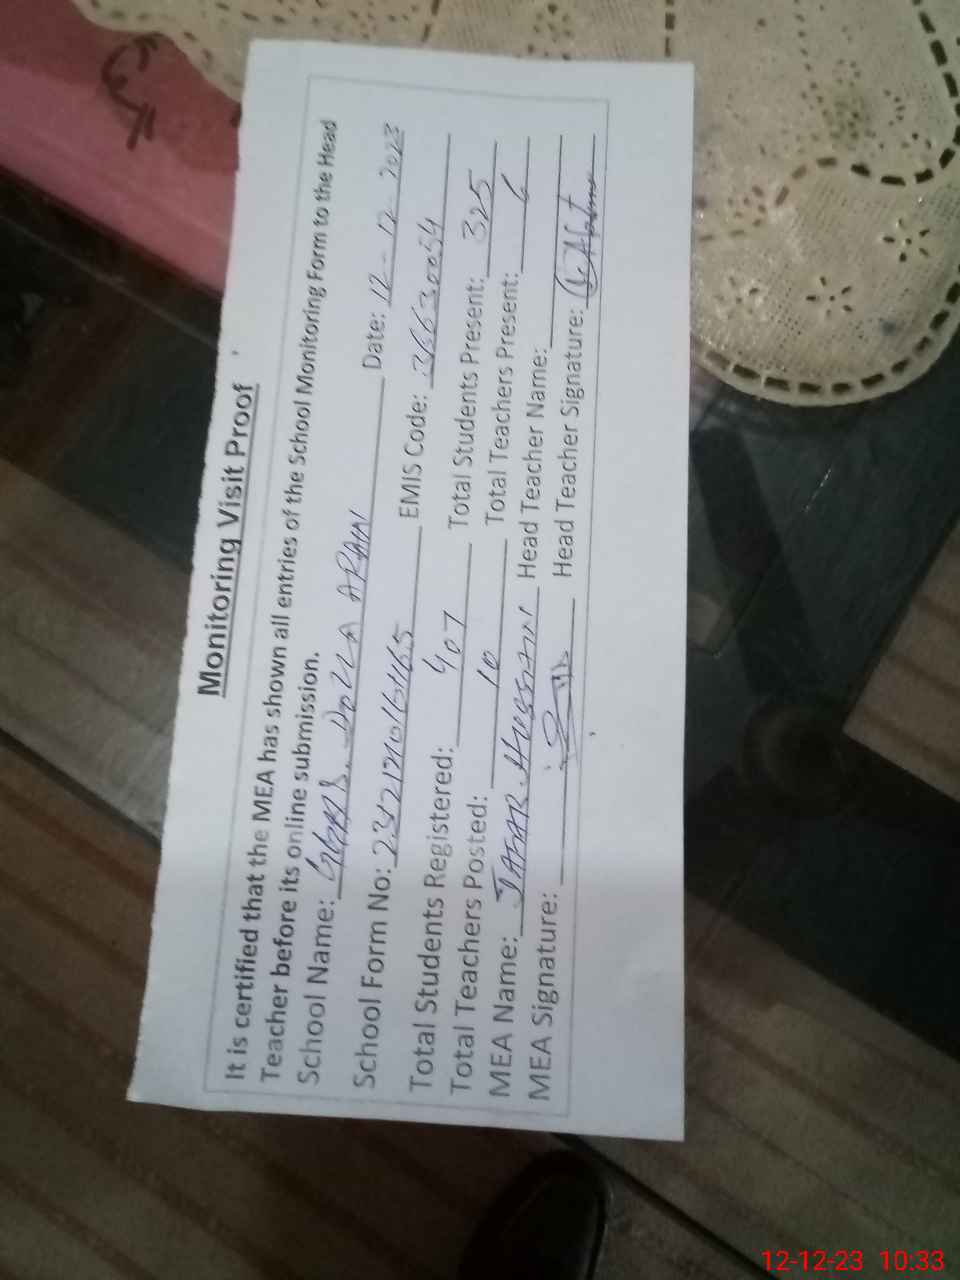 Monitoring Visit Proof
It is certified that the MEA has shown all entries of the School Monitoring Form to the Head
Teacher before its online submission.
School Name: DOLLA ARAIN Date: 12-12-2023
School Form No: EMIS Code: 36630054
Total Students Registered: 407 Total Students Present: 325
Total Teachers Posted: 10 Total Teachers Present: 6
MEA Name: JAFAR HUSSAIN Head Teacher Name:
MEA Signature: Head Teacher Signature:
12-12-23 10:33